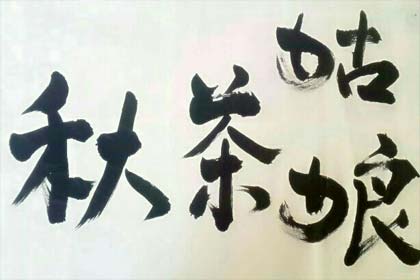 秋茶姑娘